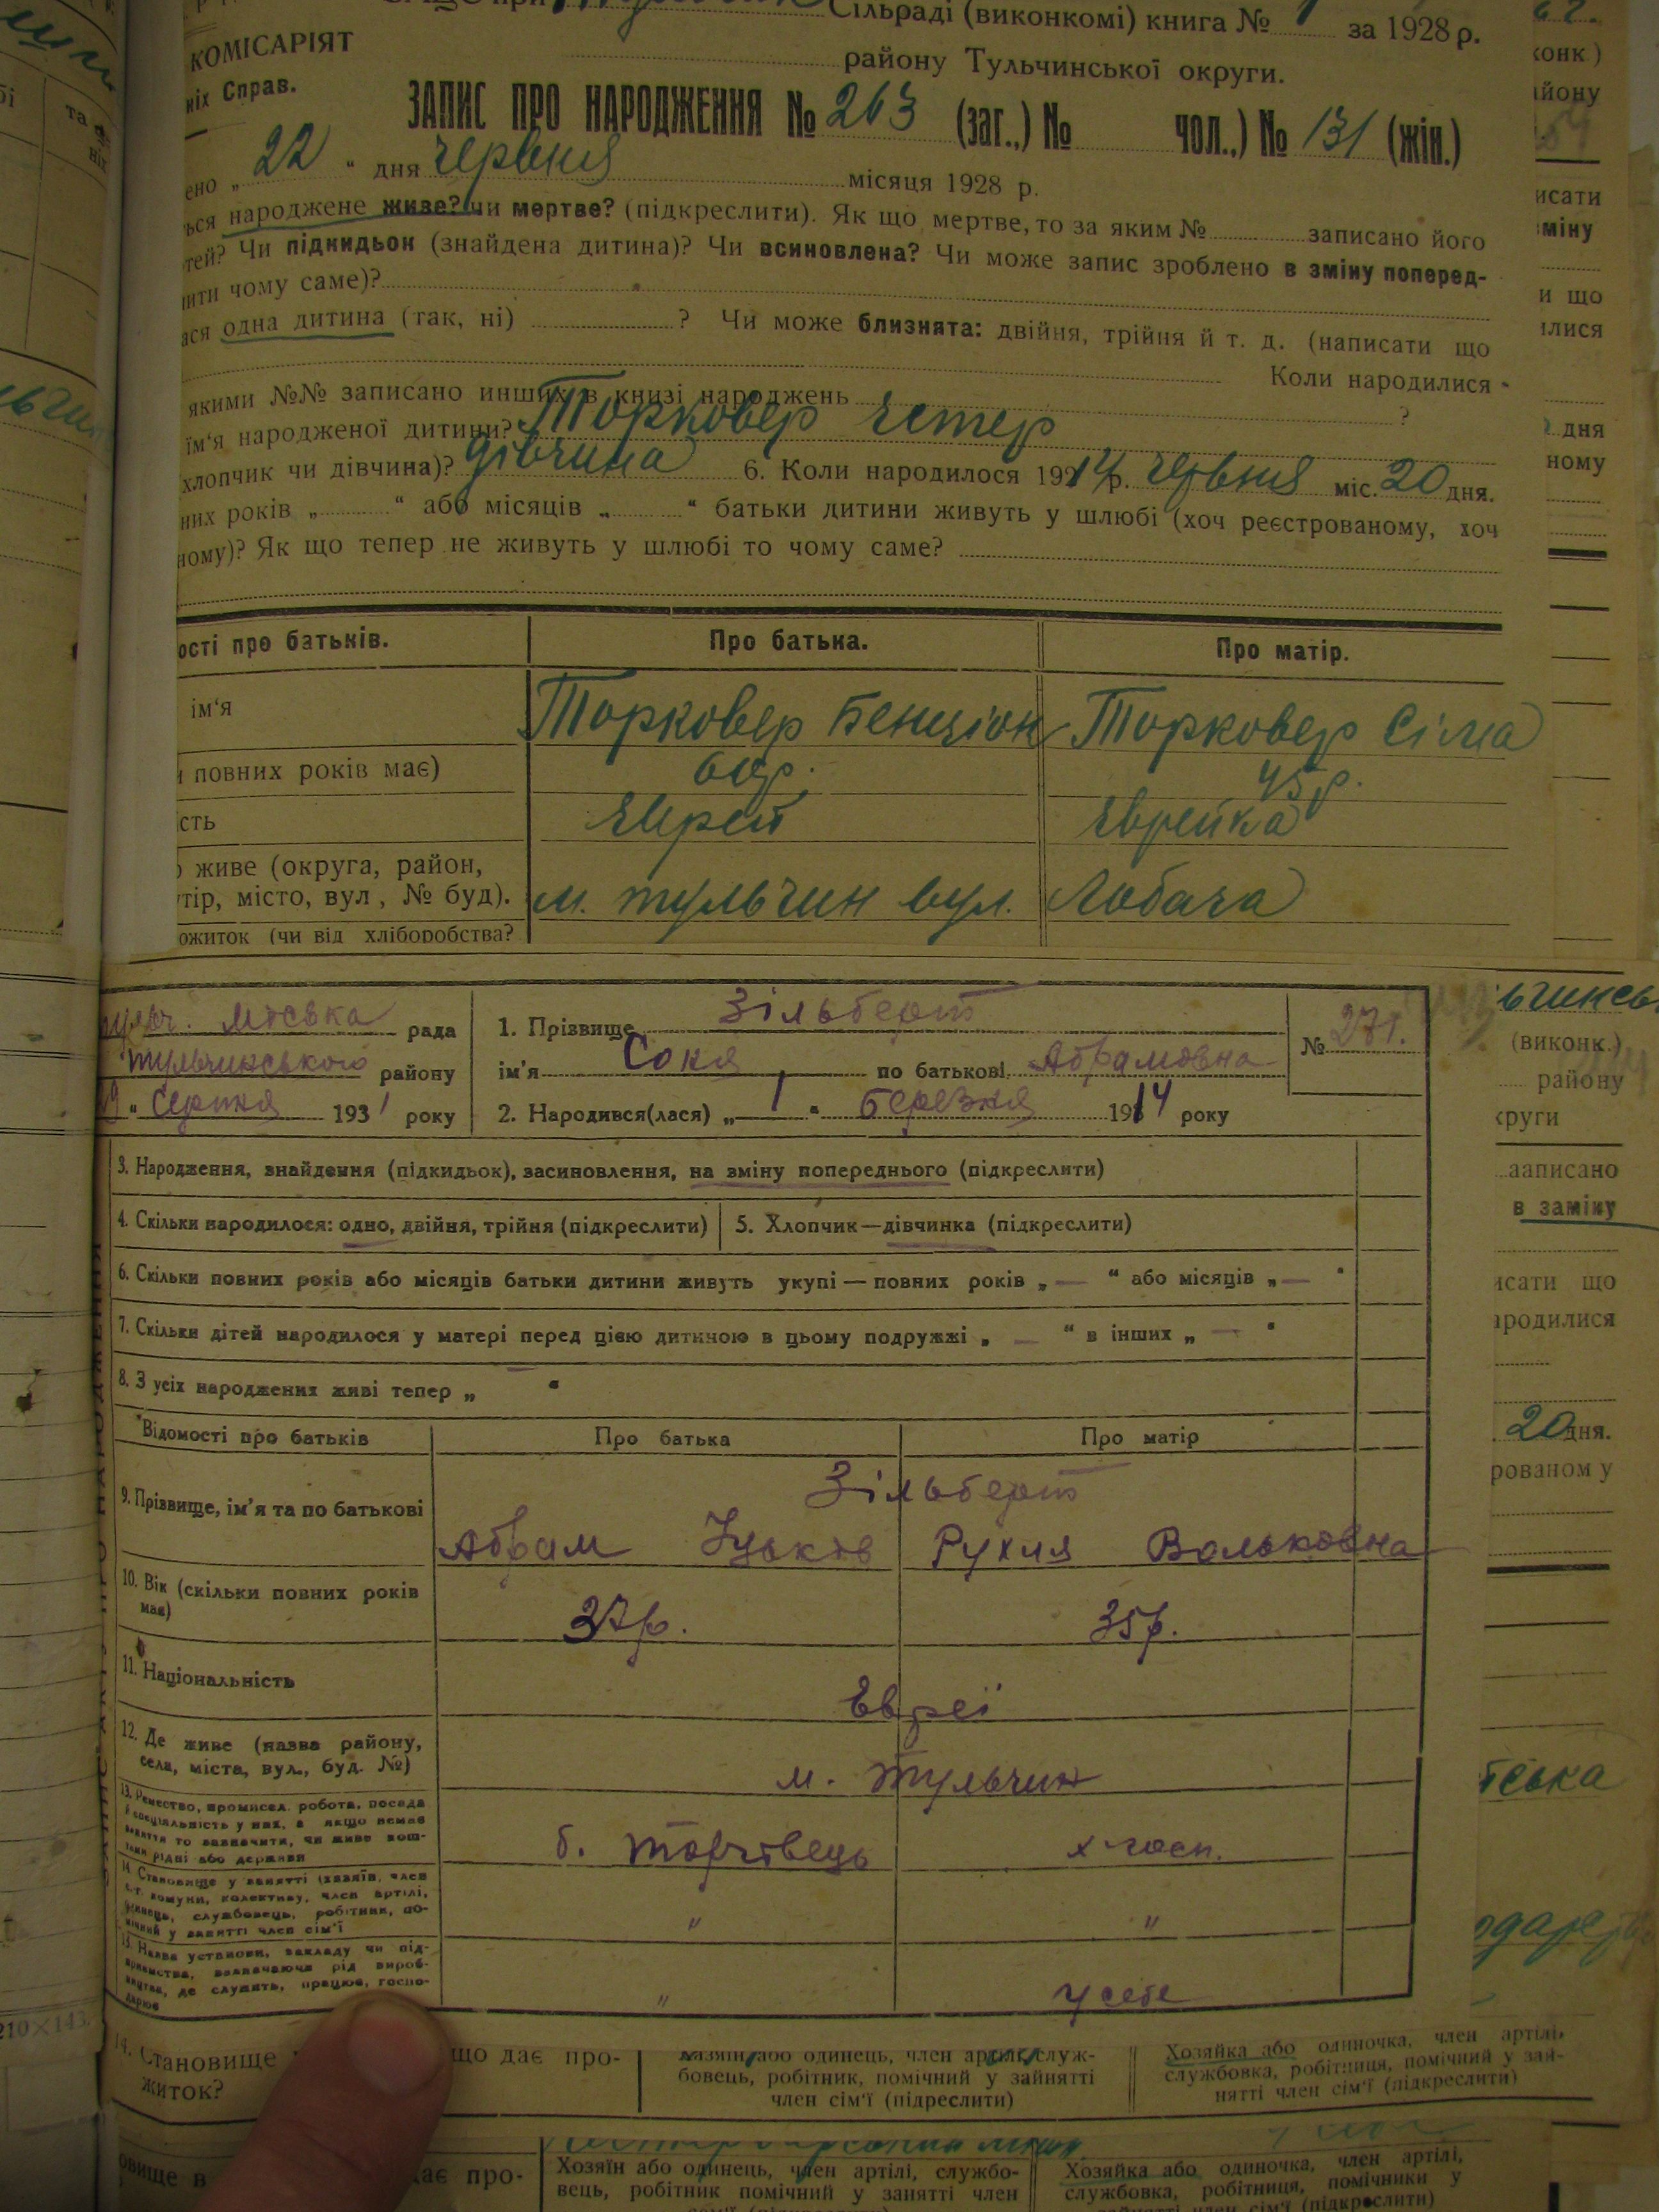 Сільраді (виконкомі) книга № за 1928 р.
КОМІСАРІЯТ
району Тульчинської округи.
ніх Справ.
ЗАПИС ПРО НАРОДЖЕННЯ № 263 (заг.,) № чол.,) № 131 (жін.)
ено „ 22 “ дня червня місяця 1928 р.
ься народжене живе? чи мертве? (підкреслити). Як що мертве, то за яким № записано його
тей? Чи підкидьок (знайдена дитина)? Чи всиновлена? Чи може запис зроблено в зміну поперед-
ити чому саме)?
ася одна дитина (так, ні) ? Чи може близнята: двійня, трійня й т. д. (написати що
Коли народилися
якими №№ записано инших в книзі народжень ?
ім‘я народженої дитини? Торковер Естер
хлопчик чи дівчина)? дівчина 6. Коли народилося 1914 р. червня міс. 20 дня.
них років „ “ або місяців „ “ батьки дитини живуть у шлюбі (хоч реєстрованому, хоч
ному)? Як що тепер не живуть у шлюбі то чому саме?
ості про батьків. Про батька. Про матір.
ім‘я Торковер Бенціон Торковер Сіма
повних років має) 60р. 45 р.
сть Єврей Єврейка
живе (округа, район,
тір, місто, вул , № буд). м. Тульчин вул. Лобача
ожиток (чи від хліборобства?
Міська рада 1. Прізвище Зільберт № 271.
Тульчинського району ім‘я Соня по батькові Абрамовна
„ Серпня 1931 року 2. Народився(лася) „ 1 “ Березня 1914 року
3. Народження, знайдення (підкидьок), засиновлення, на зміну попереднього (підкреслити)
4. Скільки народилося: одно, двійня, трійня (підкреслити) 5. Хлопчик—дівчинка (підкреслити)
6. Скільки повних років або місяців батьки дитини живуть укупі — повних років „ — “ або місяців „ — “
7. Скільки дітей народилося у матері перед цією дитиною в цьому подружжі „ — “ в інших „ — “
8. З усіх народжених живі тепер „ “
Відомості про батьків Про батька Про матір
Зільберт
9. Прізвище, ім‘я та по батькові Абрам Іцьков Рухля Вольковна
10. Вік (скільки повних років
має) 37р. 35р.
11. Національність Євреї
12. Де живе (назва району,
села, міста, вул., буд. №) м. Тульчин
13. Ремество, промисел, робота, посада
й спеціальність у них, а якщо немає
заняття то зазначити, чи живе кош-
тами рідні або держави б. торговець х-госп.
14. Становище у занятті (хазяїн, член
комуни, колективу, член артілі,
одинець, службовець, робітник, по-
мічний у занятті член сім‘ї " "
15. Назва установи, закладу чи під-
приємства, зазначаючи рід вироб-
ництва, де служить, працює, госпо-
дарює " у себе
14. Становище що дає про-
житок?
Хазяїн або одинець, член артілі, служ-
бовець, робітник, помічний у зайнятті
член сім‘ї (підреслити)
Хозяйка або одиночка, член артілі,
службовка, робітниця, помічний у зай-
нятті член сім‘ї (підкреслити)
овище в ає про-
Хозяїн або одинець, член артілі, службо-
вець, робітник помічний у занятті член
Хозяйка або одиночка, член артілі,
службовка, робітниця, помічники у
зайнятті член сім‘ї (підкреслити)
конк.)
йону
исати
міну
и що
илися
дня
ному
(виконк.)
району
круги
записано
в заміну
исати що
ародилися
20 дня.
рованому
210×143.